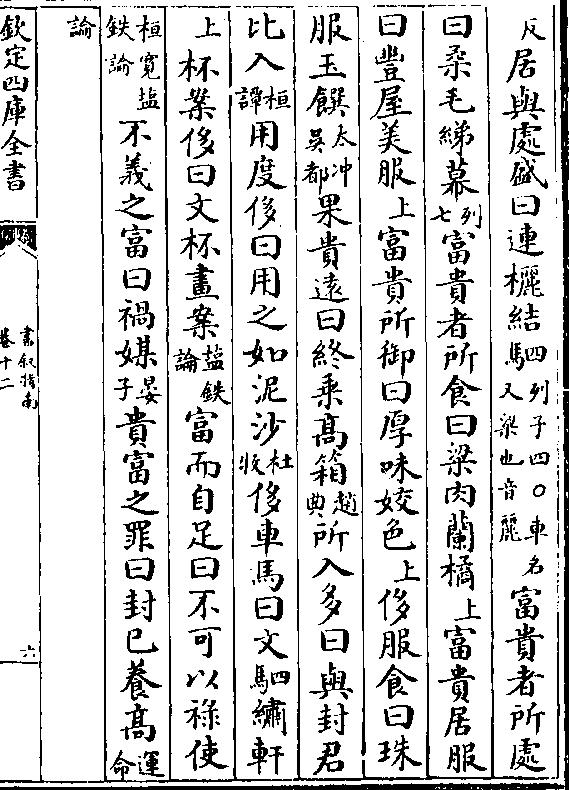 反居與處盛曰連欐結駟列子四〇車名又梁也音麗富貴者所處
曰柔毛綈幕列七富貴者所食曰梁肉蘭橘上富貴居服
曰豐屋美服上富貴所御曰厚味姣色上侈服食曰珠
服玉饌太冲吳都果貴遠曰終乘高箱趙典所入多曰與封君
比入桓譚用度侈曰用之如泥沙杜牧侈車馬曰文駟繡軒
上杯案侈曰文杯畫案盐鉄論富而自足曰不可以祿使
桓寛盐鉄論不義之富曰禍媒晏子貴富之罪曰封已養高運命
論
欽定四庫全書
書叙指南
卷十二
六